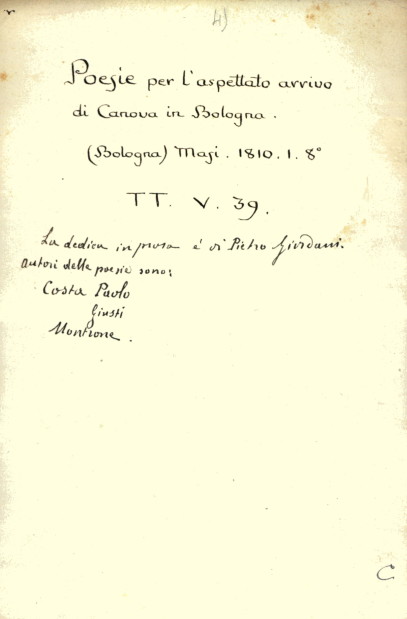 4)
Poesie per l'aspettato arrivo
di Canova in Bologna.
(Bologna) Masi. 1810. 1. 8°
TT. V. 39.
La dedica in prosa é di Pietro Giordani.
autori delle poesie sono:
Costa Paolo
Giusti
Montrone.
C